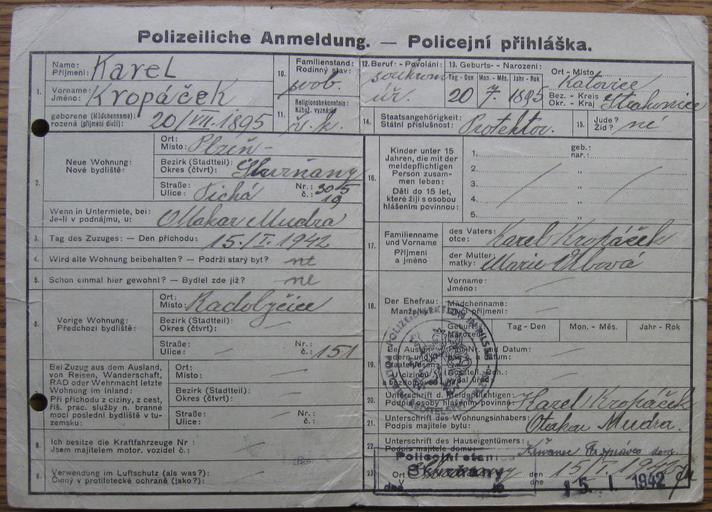 Polizeiliche Anmeldung. — Policejní přihláška.
1. Name: Příjmení: Karel
Vorname: Jméno: Kropáček
geborene (Mädchenname) rozená (příjmení dívčí): 20/VII.1895
10. Familienstand: Rodinný stav: svob.
11. Religionsbekenntnis: Nábož. vyznání: ř. k.
12. Beruf - Povolání: soukrom. úř.
13. Geburts- - Narození:
Tag - Den Mon. - Měs. Jahr - Rok
20 7. 1895
Ort - Místo: Katovice
Bez. - Kreis Okr. - Kraj Strakonice
14. Staatsangehörigkeit: Státní příslušnost: Protektor.
15. Jude? Žid? né
2. Neue Wohnung: Nové bydliště:
Ort: Místo: Plzeň-
Bezirk (Stadtteil): Okres (čtvrť): Skvrňany
Straße: Ulice: Tichá Nr.: č.: 305 19
Wenn in Untermiete, bei: Je-li v podnájmu, u: Ottokar Mudra
3. Tag des Zuzuges: — Den příchodu: 15./I. 1942
4. Wird alte Wohnung beibehalten? — Podrží starý byt? ne
5. Schon einmal hier gewohnt? — Bydlel zde již? ne
6. Vorige Wohnung: Předchozí bydliště:
Ort: Místo: Radobyčice
Bezirk (Stadtteil): Okres (čtvrť): —
Straße: Ulice: — Nr.: č.: 151
7. Bei Zuzug aus dem Ausland, von Reisen, Wanderschaft, RAD oder Wehrmacht letzte Wohnung im Inland:
Při příchodu z ciziny, z cest, říš. prac. služby n. branné moci poslední bydliště v tuzemsku:
Ort: Místo: —
Bezirk (Stadtteil): Okres (čtvrť): —
Straße: Ulice: — Nr.: č.: —
8. Ich besitze die Kraftfahrzeuge Nr: Jsem majitelem motor. vozidel č.: —
9. Verwendung im Luftschutz (als was?): Činný v protiletecké ochraně (jako?): —
16. Kinder unter 15 Jahren, die mit der meldepflichtigen Person zusammen leben:
Děti do 15 let, které žijí s osobou hlášením povinnou:
geb.: nar.:
1.
2.
3.
4.
5.
17. Familienname und Vorname Příjmení a jméno
des Vaters: otce: Karel Kropáček
der Mutter: matky: Marie Vrbová
18. Der Ehefrau:
Vorname: Jméno: —
Mädchenname:
Tag - Den Mon. - Měs. Jahr - Rok
Datum: —
20. Unterschrift d. Meldepflichtigen Podpis osoby hlášením povinné: Karel Kropáček
21. Unterschrift des Wohnungsinhabers: Podpis majitele bytu: Otakar Mudra.
22. Unterschrift des Hauseigentümers: Podpis majitele domu:
23. Ort V Skvrňany den 15/I. 1942
Skvrňany
15. I. 1942